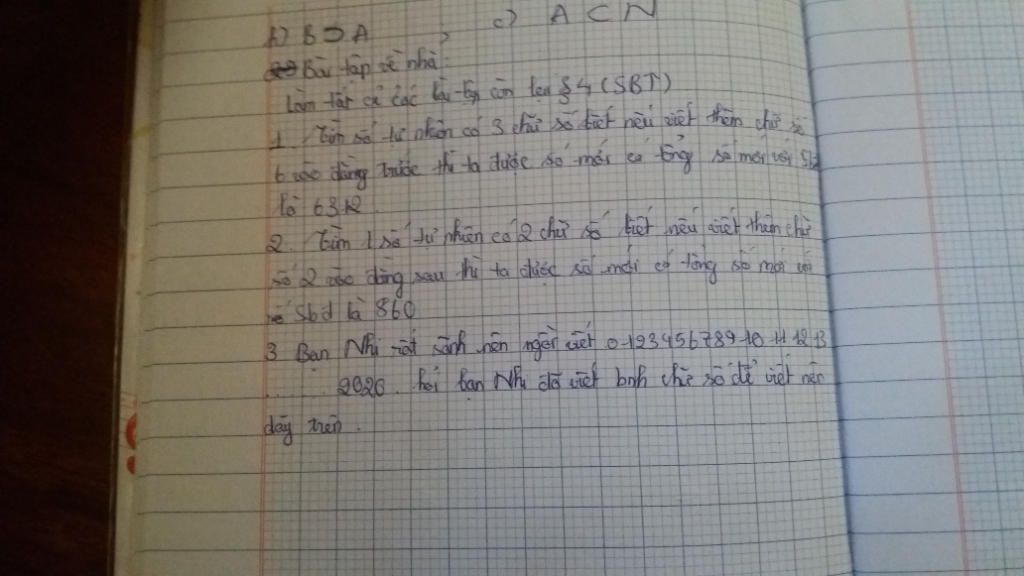 b) B ⊃ A , c) A ⊂ N
Bài tập về nhà:
Làm tất cả các bài tập còn lại § 4 (SBT)
1 Tìm số tự nhiên có 3 chữ số biết nếu viết thêm chữ số
6 vào đằng trước thì ta được số mới có tổng số mới với sbđ
là 6312.
2. Tìm 1 số tự nhiên có 2 chữ số biết nếu viết thêm chữ
số 2 vào đằng sau thì ta được số mới có tổng số mới với
sbđ là 860
3 Bạn Nhi rất rảnh nên ngồi viết 0 123456789 10 11 12 13
...... 2020. hỏi bạn Nhi đã viết bnh chữ số để viết nên
dãy trên.